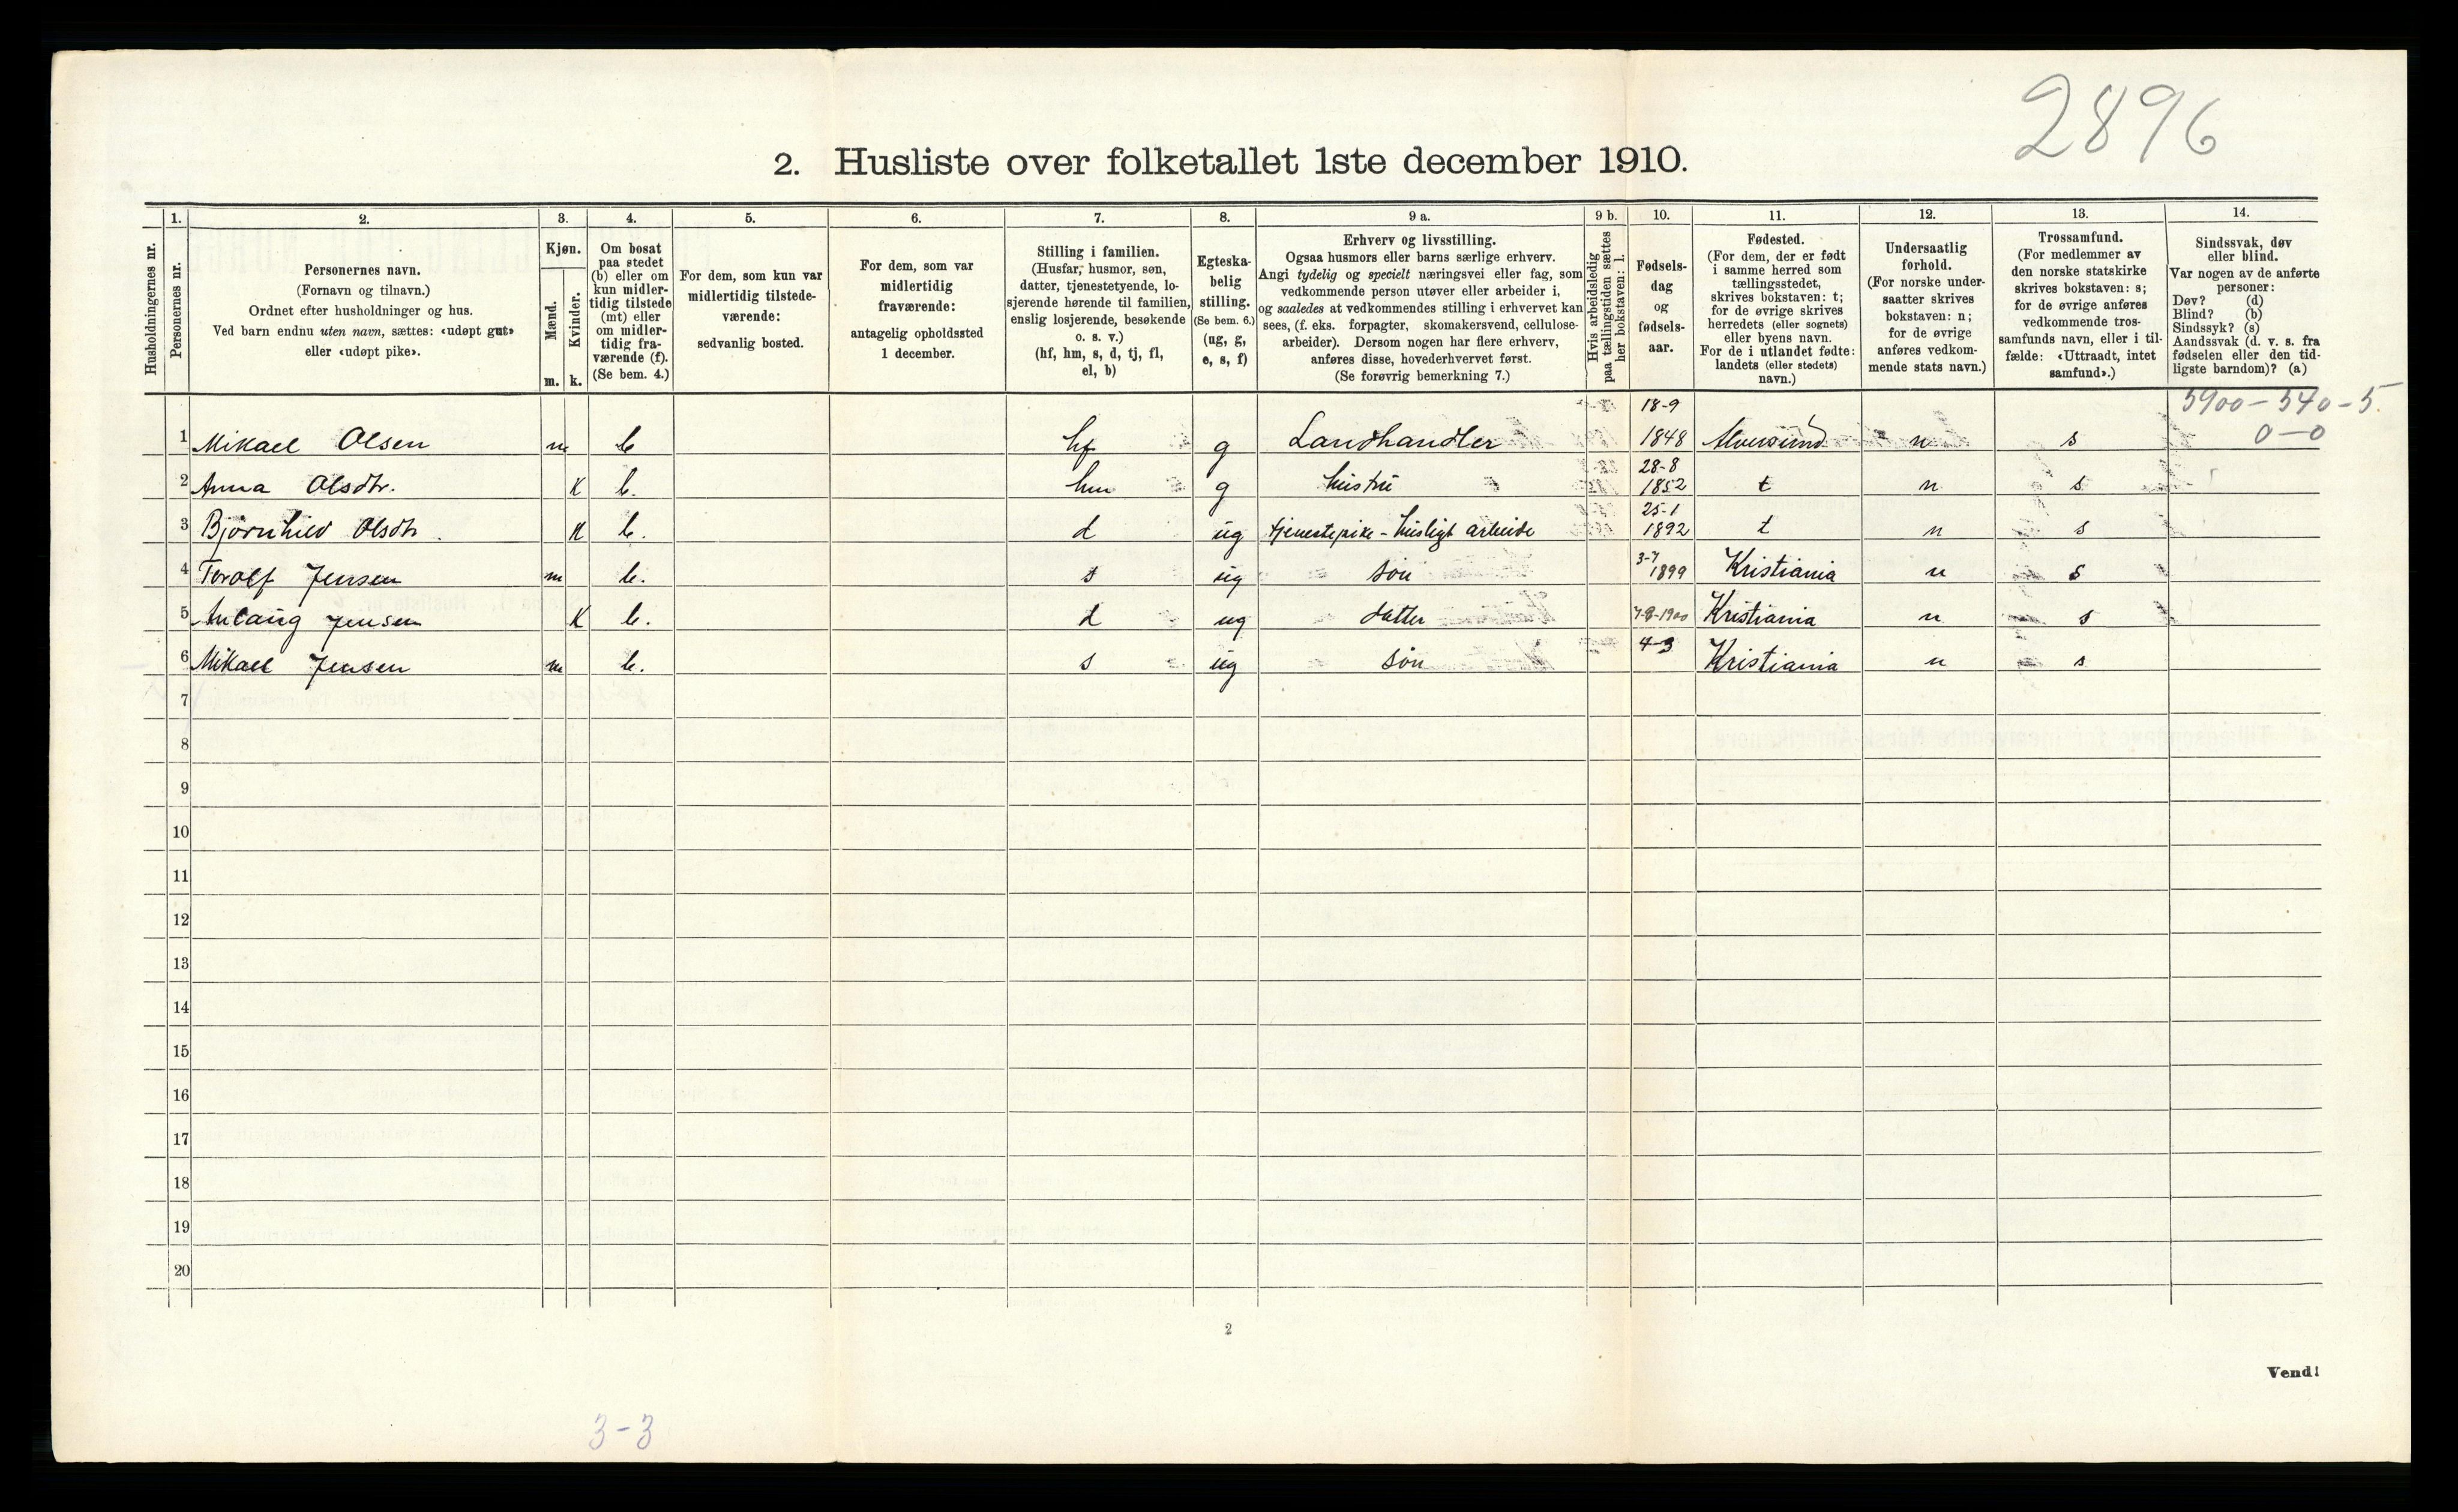 2896
2. Husliste over folketallet 1ste december 1910.
Husholdningernes nr.
1.
Personernes nr.
2.
Personernes navn.
(Fornavn og tilnavn.)
Ordnet efter husholdninger og hus.
Ved barn endnu uten navn, sættes: «udøpt gut»
eller «udøpt pike».
3.
Kjøn.
Mænd.
m.
Kvinder.
k.
4.
Om bosat
paa stedet
(b) eller om
kun midler-
tidig tilstede
(mt) eller
om midler-
tidig fra-
værende (f).
(Se bem. 4.)
5.
For dem, som kun var
midlertidig tilstede-
værende:
sedvanlig bosted.
6.
For dem, som var
midlertidig
fraværende:
antagelig opholdssted
1 december.
7.
Stilling i familien.
(Husfar, husmor, søn,
datter, tjenestetyende, lo-
sjerende hørende til familien,
enslig losjerende, besøkende
o. s. v.)
(hf, hm, s, d, tj, fl,
el, b)
8.
Egteska-
belig
stilling.
(Se bem. 6.)
(ug, g,
e, s, f)
9 a.
Erhverv og livsstilling.
Ogsaa husmors eller barns særlige erhverv.
Angi tydelig og specielt næringsvei eller fag, som
vedkommende person utøver eller arbeider i,
og saaledes at vedkommendes stilling i erhvervet kan
sees, (f. eks. forpagter, skomakersvend, cellulose-
arbeider). Dersom nogen har flere erhverv,
anføres disse, hovederhvervet først.
(Se forøvrig bemerkning 7.)
9 b.
Hvis arbeidsledig
paa tællingstiden sættes
her bokstaven: l.
10.
Fødsels-
dag
og
fødsels-
aar.
11.
Fødested.
(For dem, der er født
i samme herred som
tællingsstedet,
skrives bokstaven: t;
for de øvrige skrives
herredets (eller sognets)
eller byens navn.
For de i utlandet fødte:
landets (eller stedets)
navn.)
12.
Undersaatlig
forhold.
(For norske under-
saatter skrives
bokstaven: n;
for de øvrige
anføres vedkom-
mende stats navn.)
13.
Trossamfund.
(For medlemmer av
den norske statskirke
skrives bokstaven: s;
for de øvrige anføres
vedkommende tros-
samfunds navn, eller i til-
fælde: «Uttraadt, intet
samfund».)
14.
Sindssvak, døv
eller blind.
Var nogen av de anførte
personer:
Døv? (d)
Blind? (b)
Sindssyk? (s)
Aandssvak (d. v. s. fra
fødselen eller den tid-
ligste barndom)? (a)
5900 - 540 - 5.
0 - 0
1 Mikael Olsen m b hf g Landhandler 18-9 1848 Alversund n s
2 Anna Olsdtr. K b. hm g hustru 28-8 1852 t n s
3 Bjørnhild Olsdtr. K b. d ug tjenestepike - husligt arbeide 25-1 1892 t n s
4 Torolf Jensen m b. s ug søn 3-7 1899 Kristiania n s
5 Aslaug Jensen K b. d ug datter 1900 Kristiania n s
6 Mikael Jensen m b. s ug søn 4-3 Kristiania n s
7
8
9
10
11
12
13
14
15
16
17
18
19
20
2
Vend!
3-3